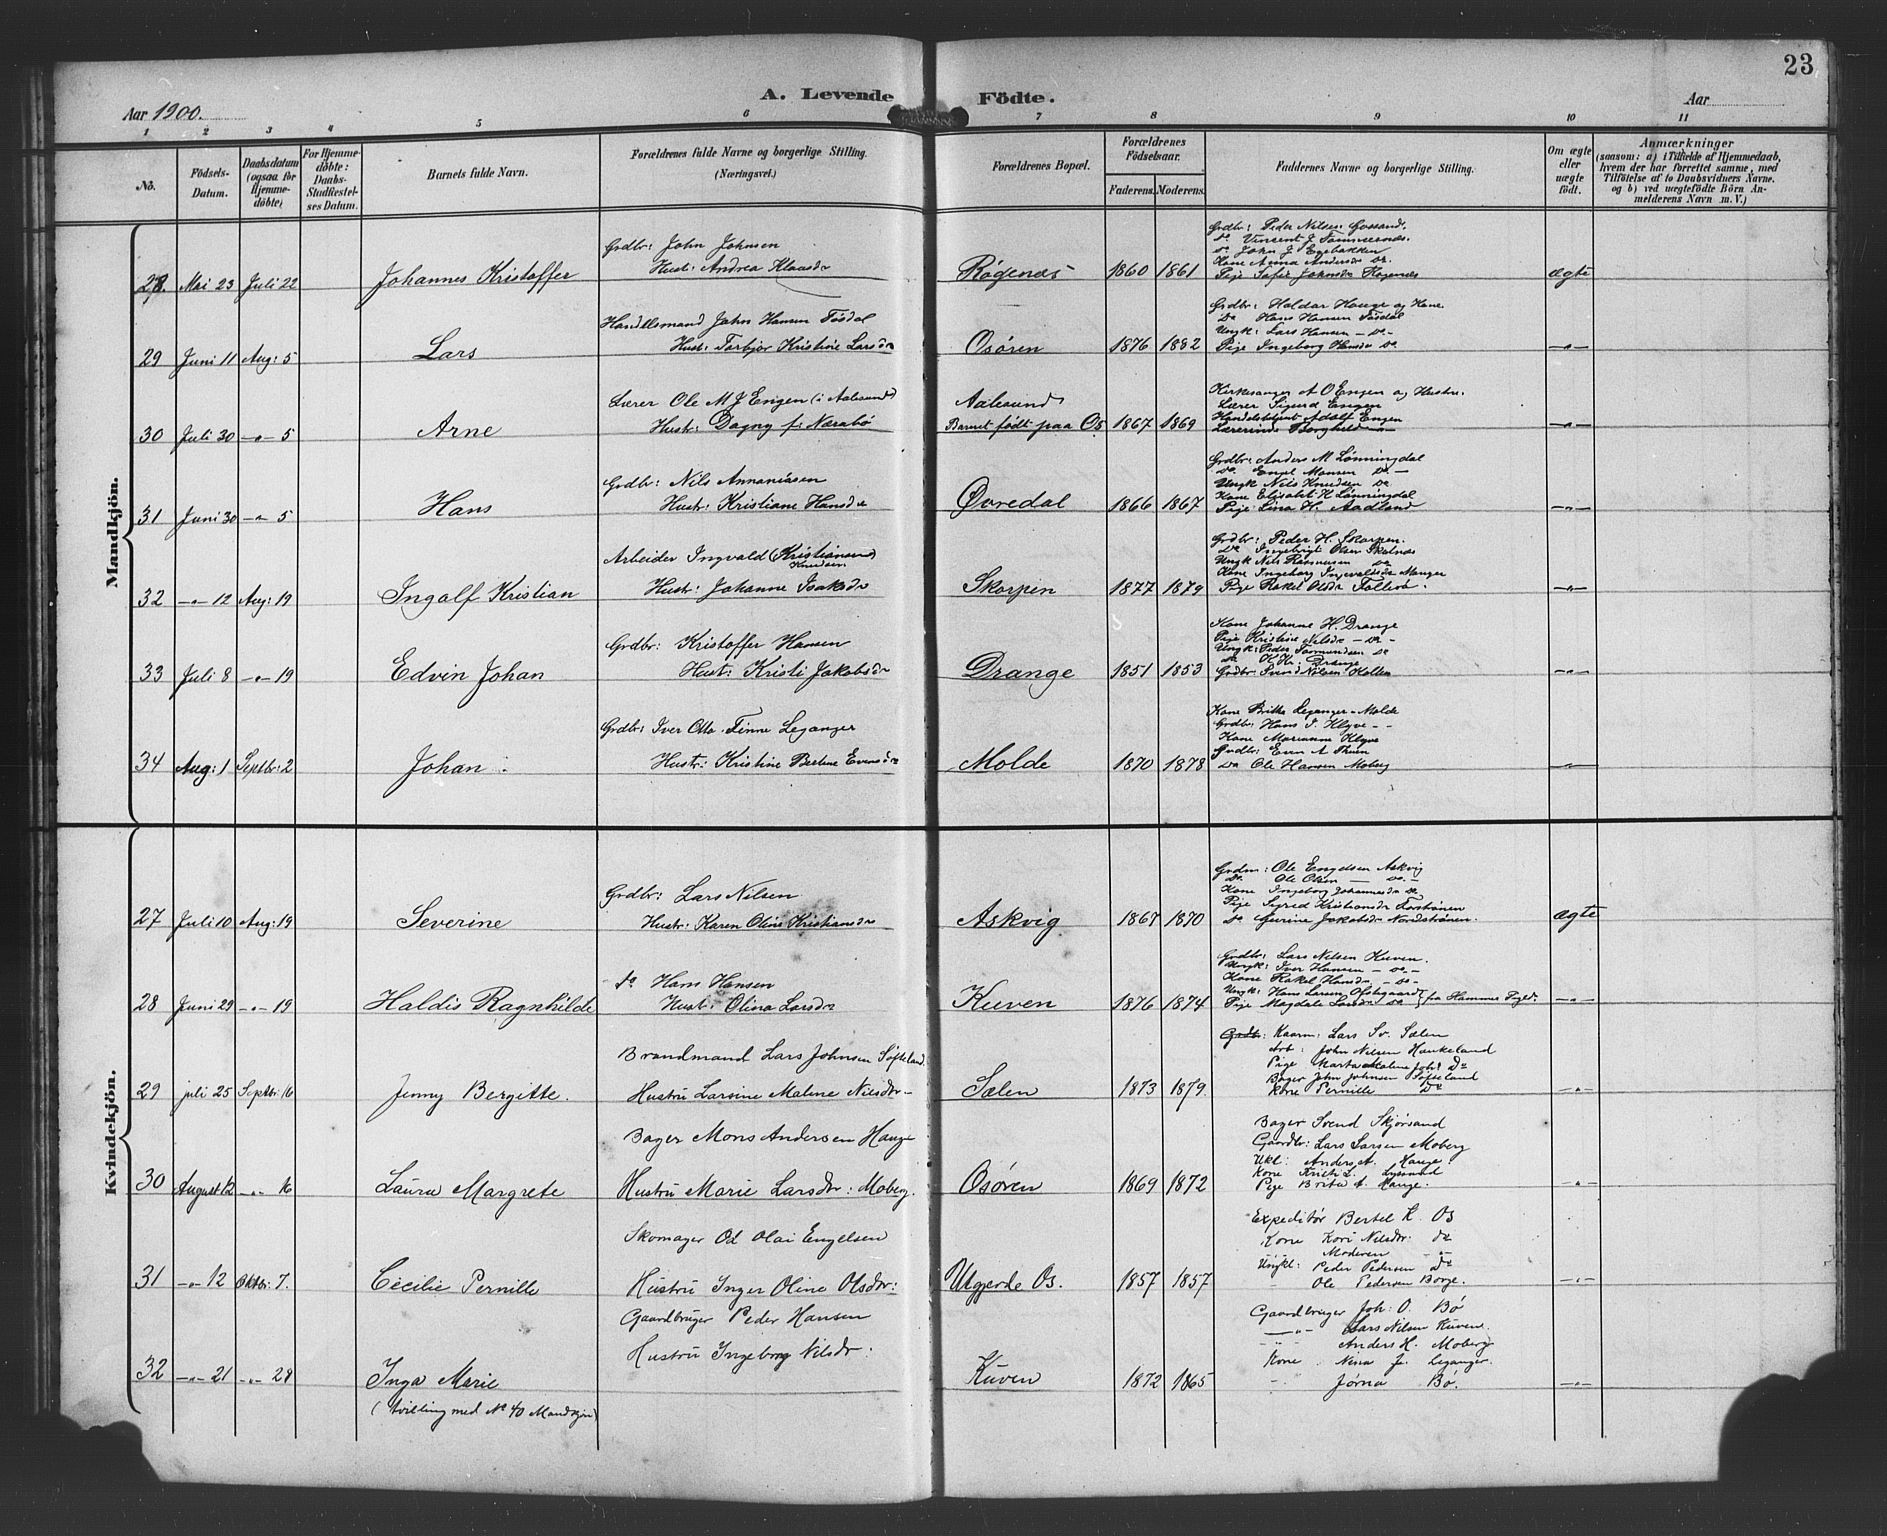 23
Aar 1900.
A. Levende Födte.
Aar
1 2 3 4 5 6 7 8 9 10 11
No.
Födsels-Datum.
Daabsdatum (ogsaa for Hjemmedöbte)
For Hjemmedöbte: Daabs-Stadfestelses Datum.
Barnets fulde Navn.
Forældrenes fulde Navne og borgerlige Stilling. (Næringsvei.)
Forældrenes Bopæl.
Forældrenes Födselsaar.
Faderens. Moderens.
Faddernes Navne og borgerlige Stilling.
Om ægte eller uægte födt.
Anmærkninger
(saasom: a) i Tilfælde af Hjemmedaab, hvem der har forrettet samme, med Tilföielse af to Daabsvidners Navne. og b) ved uægtefödte Börn Anmelderens Navn m. V.)
Mandkjön.
28. Mai 23 Juli 22 Johannes Kristoffer
Grdbr: John Johnsen
Hust: Andrea Klausdr
Røgenæs 1860 1861
Grdbr: Peder Nilsen
Do Vincent J Tømmernæs.
Do John J Engebakken
Kone Anna Andersdr Do.
Pige Sofie Johnsdr Røgenæs
ægte
29 Juni 11 Aug: 5 Lars
Handelsmand John Hansen Tøsdal
Hust: Torbjør Kristine Larsdr
Osøren 1876 1882
Grdbr: Haldor Hauge og Kone
Do Hans Hansen Tøsdal
Ungk: Lars Hansen - Do -
Pige Ingeborg Hansdr Do
-"-
30 Juli 30 -"- 5 Arne
Lærer Ole M J Engen (i Aalesund)
Hustr: Dagny f: Nærabø
Aalesund
Barnet født paa Os 1867 1869
Kirkesanger A O Engen og Hustru.
Lærer Sigurd Engen
Adolf Engen
Lærerinde Borghild -"-
-"-
31 Juni 30 -"- 5 Hans
Grdbr: Nils Annaniasen
Hustr: Kristiane Hansdr
Øvredal 1866 1867
Grdbr: Anders M Lønningdal
Do Engel Monsen Do -
Ungk Nils Knudsen Do
Kone Elisabet H Lønningdal
Pige Lina H. Aadland
-"-
32 -"- 12 Aug: 19 Ingolf Kristian
Arbeider Ingvald (Kristiansen)
Knudsen
Hustr: Johanne Isaksdr
Skorpen 1877 1879
Grdbr: Peder H. Skorpen.
Do Ingebrigt Olsen
Ungk Nils Rasmussen Do
Kone Ingeborg Ingvaldsdr Manger
Pige Rakel Olsdr
-"-
33 Juli 8 -"- 19 Edvin Johan
Grdbr: Kristoffer Hansen
Hust: Kristi Jakobsdr
Drange 1851 1853
Kone Johanne H. Drange
Pige Kristine Nilsdr - Do -
Ungk: Peder Tormundsen Do
Do K Kr: Drange
Grdbr: Svend Nilsen Kolten
-"-
34 Aug: 1 Septbr: 2 Johan.
Grdbr: Iver Otto Finne Leganger
Hustr: Kristine Bertine Evensdr
Molde 1870 1878
Kone Britha Leganger - Molde
Grdbr: Hans J. Klyve - -
Kone Marianne Klyve
Grdbr: Even A Thuen
Do Ole Hansen Moberg
-"-
Kvindekjön.
27 Juli 10 Aug: 19 Severine
Grdbr: Lars Nilsen
Hustr: Karen Oline Kristiansdr
Askvig 1867 1870
Grdm: Ole Engelsen Askvig
Do. Ole Olsen - Do. -
Kone Ingeborg Johannesdr Do
Pige Sigrid Kristiansdr
Do Jakobsdr Nordstrønen.
ægte
28 Juni 29 -"- 19 Haldis Ragnhilde
Do Hans Hansen
Hust: Olina Larsdr
Kuven 1876 1874
Grdbr: Lars Nilsen Kuven.
Ungk: Iver Hansen - Do -
Kone Rakel Hansdr - Do -
Ungk: Hans Larsen
Pige Magdale Larsdr Do fra Hammer
-"-
29 juli 25 Septbr: 16 Jenny Bergitte.
Brandmand Lars Johnsen Søfteland
Hustru Larsine Malene Nilsdr -
Sælen 1873 1879.
Grdb: Kaarm: Lars Sv. Sælen
Arb: John Nilsen Haukeland
Pige Marta Malene Joh: Do
Bager John Johnsen Søfteland
Kone Pernille Do
-"-
30 August 12 -"- 16 Laura Margrete
Bager Mons Andersen Hauge
Hustru Marie Larsdr: Moberg.
Osøren 1869 1872
Bager Svend Skjørsand
Gaardbr: Lars Larsen Moberg
Ukl: Anders A. Hauge.
Kone Kristi L. Lyssand
Pige Brita A. Hauge.
-"-
31 -"- 12 Oktbr: 7. Cecilie Pernille
Skomager Od Olai Engelsen
Hustru Inger Oline Olsdr:
Utgjerde Os. 1857 1857
Expeditør Bertel K. Os
Kone Kari Nilsdr: Do
Moderen -"-
Ungkl: Peder Pedersen Do
" Ole Pedersen Borge.
-"-
32 -"- 21 -"- 28 Inga Marie
(tvilling med No 40 Mandkjøn)
Gaardbruger Peder Hansen
Hustru Ingeborg Nilsdr:
Kuven 1872 1865
Gaardbruger Joh: O. Bø
-"- Lars Nilsen Kuven.
-"- Anders H. Moberg
Kone Nina J. Leganger.
" Jørna Bø.
-"-